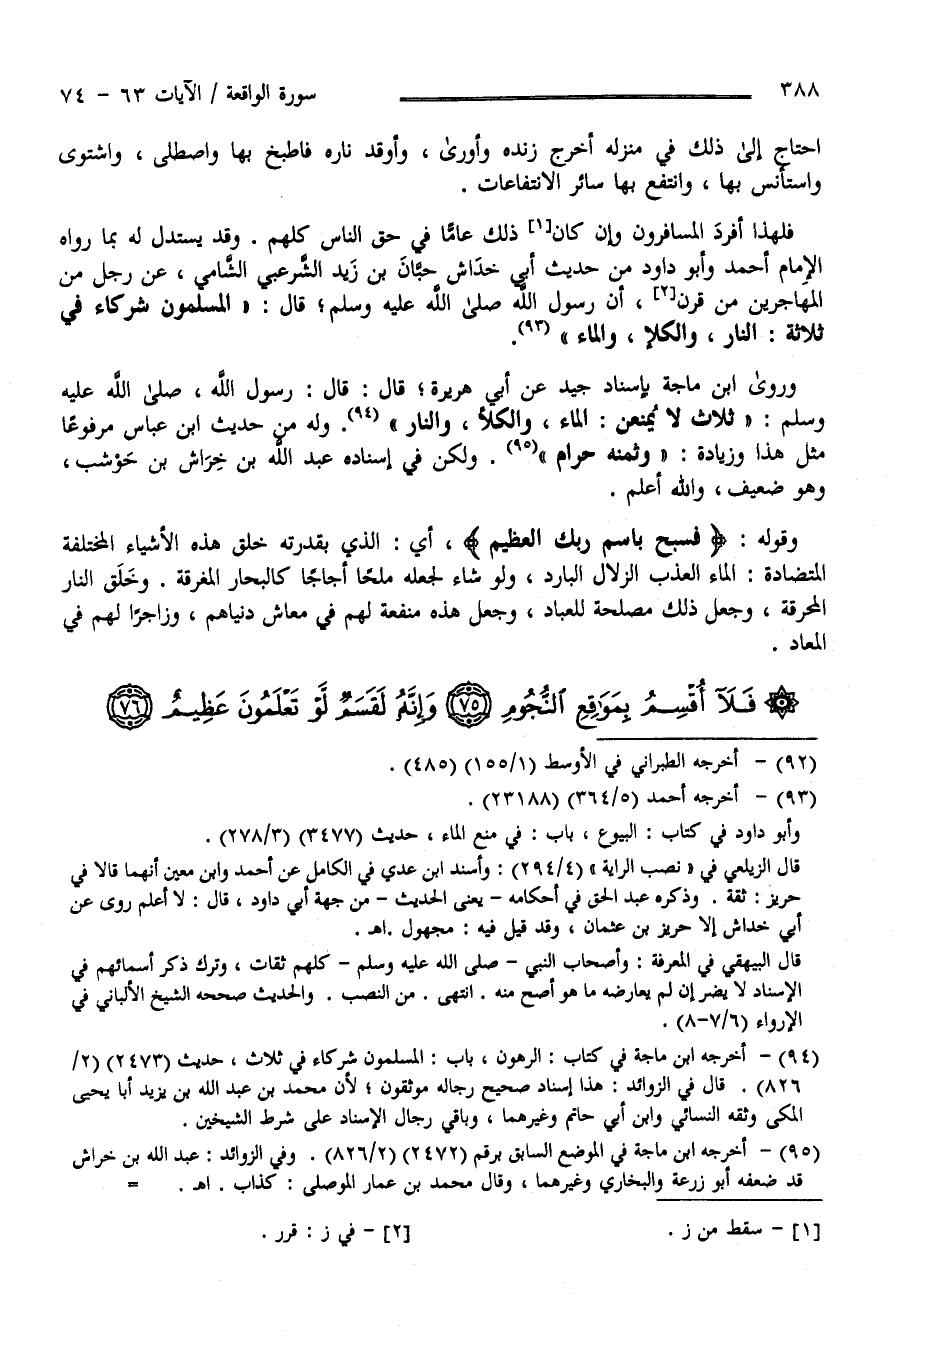 ٣٨٨ سورة الواقعة / الآيات ٦٣ - ٧٤
احتاج إلىٰ ذلك في منزله أخرج زنده وأورىٰ ، وأوقد ناره فاطبخ بها واصطلى ، واشتوى
واستأنس بها ، وانتفع بها سائر الانتفاعات .
فلهذا أفردَ المسافرون وإن كان[١] ذلك عامًّا في حق الناس كلهم . وقد يستدل له بما رواه
الإمام أحمد وأبو داود من حديث أبي خدَاش حبَّانَ بن زَيد الشَّرعبي الشَّامي ، عن رجل من
المهاجرين من قرن[٢] ، أن رسول اللَّه صلىٰ اللَّه عليه وسلم؛ قال : « المسلمون شركاء في
ثلاثة : النار ، والكلإ ، والماء » (٩٣).
وروىٰ ابن ماجة بإسناد جيد عن أبي هريرة ؛ قال : قال : رسول اللَّه ، صلىٰ اللَّه عليه
وسلم : « ثلاث لا يُمنعن : الماء ، والكلأ ، والنار » (٩٤). وله من حديث ابن عباس مرفوعًا
مثل هذا وزيادة : « وثمنه حرام »(٩٥) . ولكن في إسناده عبد اللَّه بن خِرَاش بن حَوْشب ،
وهو ضعيف ، واللَّه أعلم .
وقوله : ﴿ فسبح باسم ربك العظيم ﴾ ، أي : الذي بقدرته خلق هذه الأشياء المختلفة
المتضادة : الماء العذب الزلال البارد ، ولو شاء لجعله ملحًا أجاجًا كالبحار المغرقة . وخَلَق النار
المحرقة ، وجعل ذلك مصلحة للعباد ، وجعل هذه منفعة لهم في معاش دنياهم ، وزاجرًا لهم في
المعاد .
۞ فَلَآ أُقْسِمُ بِمَوَٰقِعِ ٱلنُّجُومِ ٧٥ وَإِنَّهُۥ لَقَسَمٌ لَّوْ تَعْلَمُونَ عَظِيمٌ ٧٦
(٩٢) - أخرجه الطبراني في الأوسط (١٥٥/١) (٤٨٥) .
(٩٣) - أخرجه أحمد (٣٦٤/٥) (٢٣١٨٨) .
وأبو داود في كتاب : البيوع ، باب : في منع الماء ، حديث (٣٤٧٧) (٢٧٨/٣) .
قال الزيلعي في « نصب الراية » (٢٩٤/٤) : وأسند ابن عدي في الكامل عن أحمد وابن معين أنهما قالا في
حريز : ثقة . وذكره عبد الحق في أحكامه - يعنى الحديث - من جهة أبي داود ، قال : لا أعلم روى عن
أبي خداش إلا حريز بن عثمان ، وقد قيل فيه : مجهول .اهـ .
قال البيهقي في المعرفة : وأصحاب النبي - صلى الله عليه وسلم - كلهم ثقات ، وترك ذكر أسمائهم في
الإسناد لا يضر إن لم يعارضه ما هو أصح منه . انتهى . من النصب . والحديث صححه الشيخ الألباني في
الإرواء (٧/٦-٨) .
(٩٤) - أخرجه ابن ماجة في كتاب : الرهون ، باب : المسلمون شركاء في ثلاث ، حديث (٢٤٧٣) (٢/
٨٢٦) . قال في الزوائد : هذا إسناد صحيح رجاله موثقون ؛ لأن محمد بن عبد الله بن يزيد أبا يحيى
المكى وثقه النسائي وابن أبي حاتم وغيرهما ، وباقي رجال الإسناد على شرط الشيخين .
(٩٥) - أخرجه ابن ماجة في الموضع السابق برقم (٢٤٧٢) (٨٢٦/٢) . وفي الزوائد : عبد الله بن خراش
قد ضعفه أبو زرعة والبخاري وغيرهما ، وقال محمد بن عمار الموصلى : كذاب . اهـ . =
[١] - سقط من ز . [٢] - في ز : قرر .